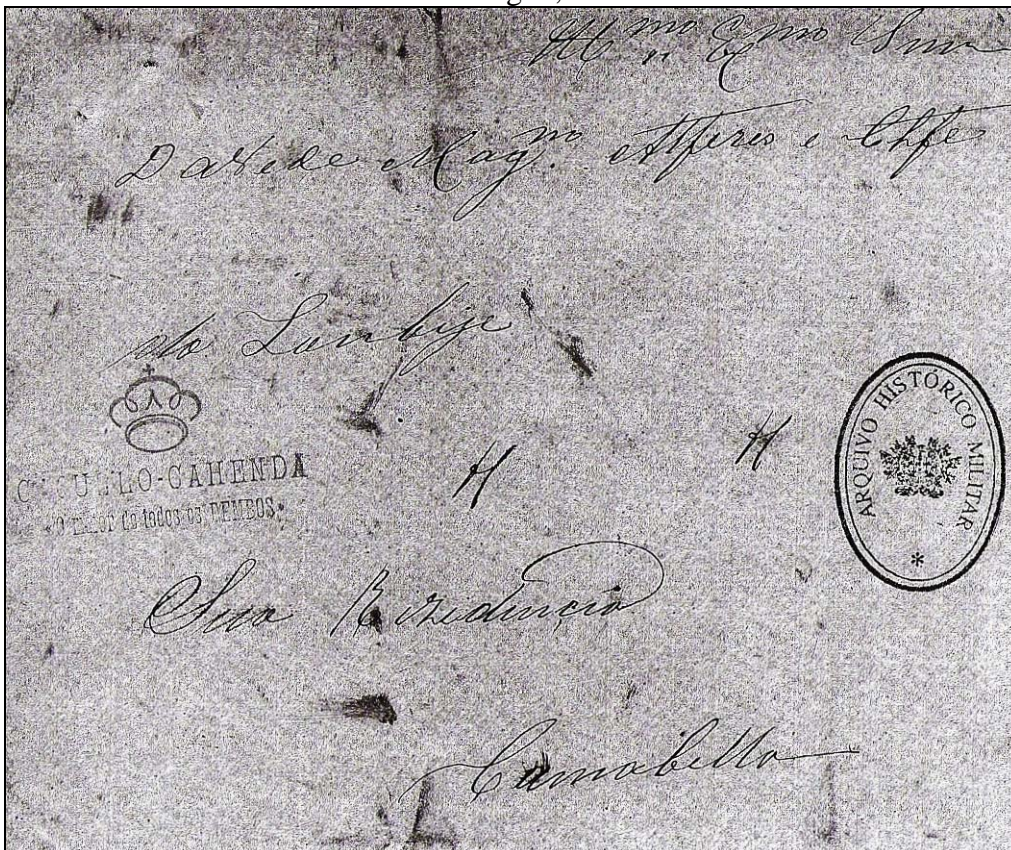 Ill.mo Ex.mo Snnr
David de Mag.mo Alferes e Chfe
do Lunbije
-CAHENDA
de todos os DEMBOS.
H H
ARQUIVO HISTÓRICO MILITAR
*
Sua Rezidencia
Camabella